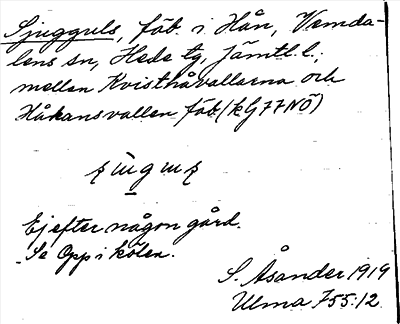 Sjugguls, fäb. i Hån, Vemda-
lens sn, Hede tg, Jämtl. l.;
mellan Kvisthåvallarna och
Håkansvallen fäb. (kG77NÖ)
Ej efter någon gård.
Se Opp i kölen.
S. Åsander 1919
Ulma 755:12